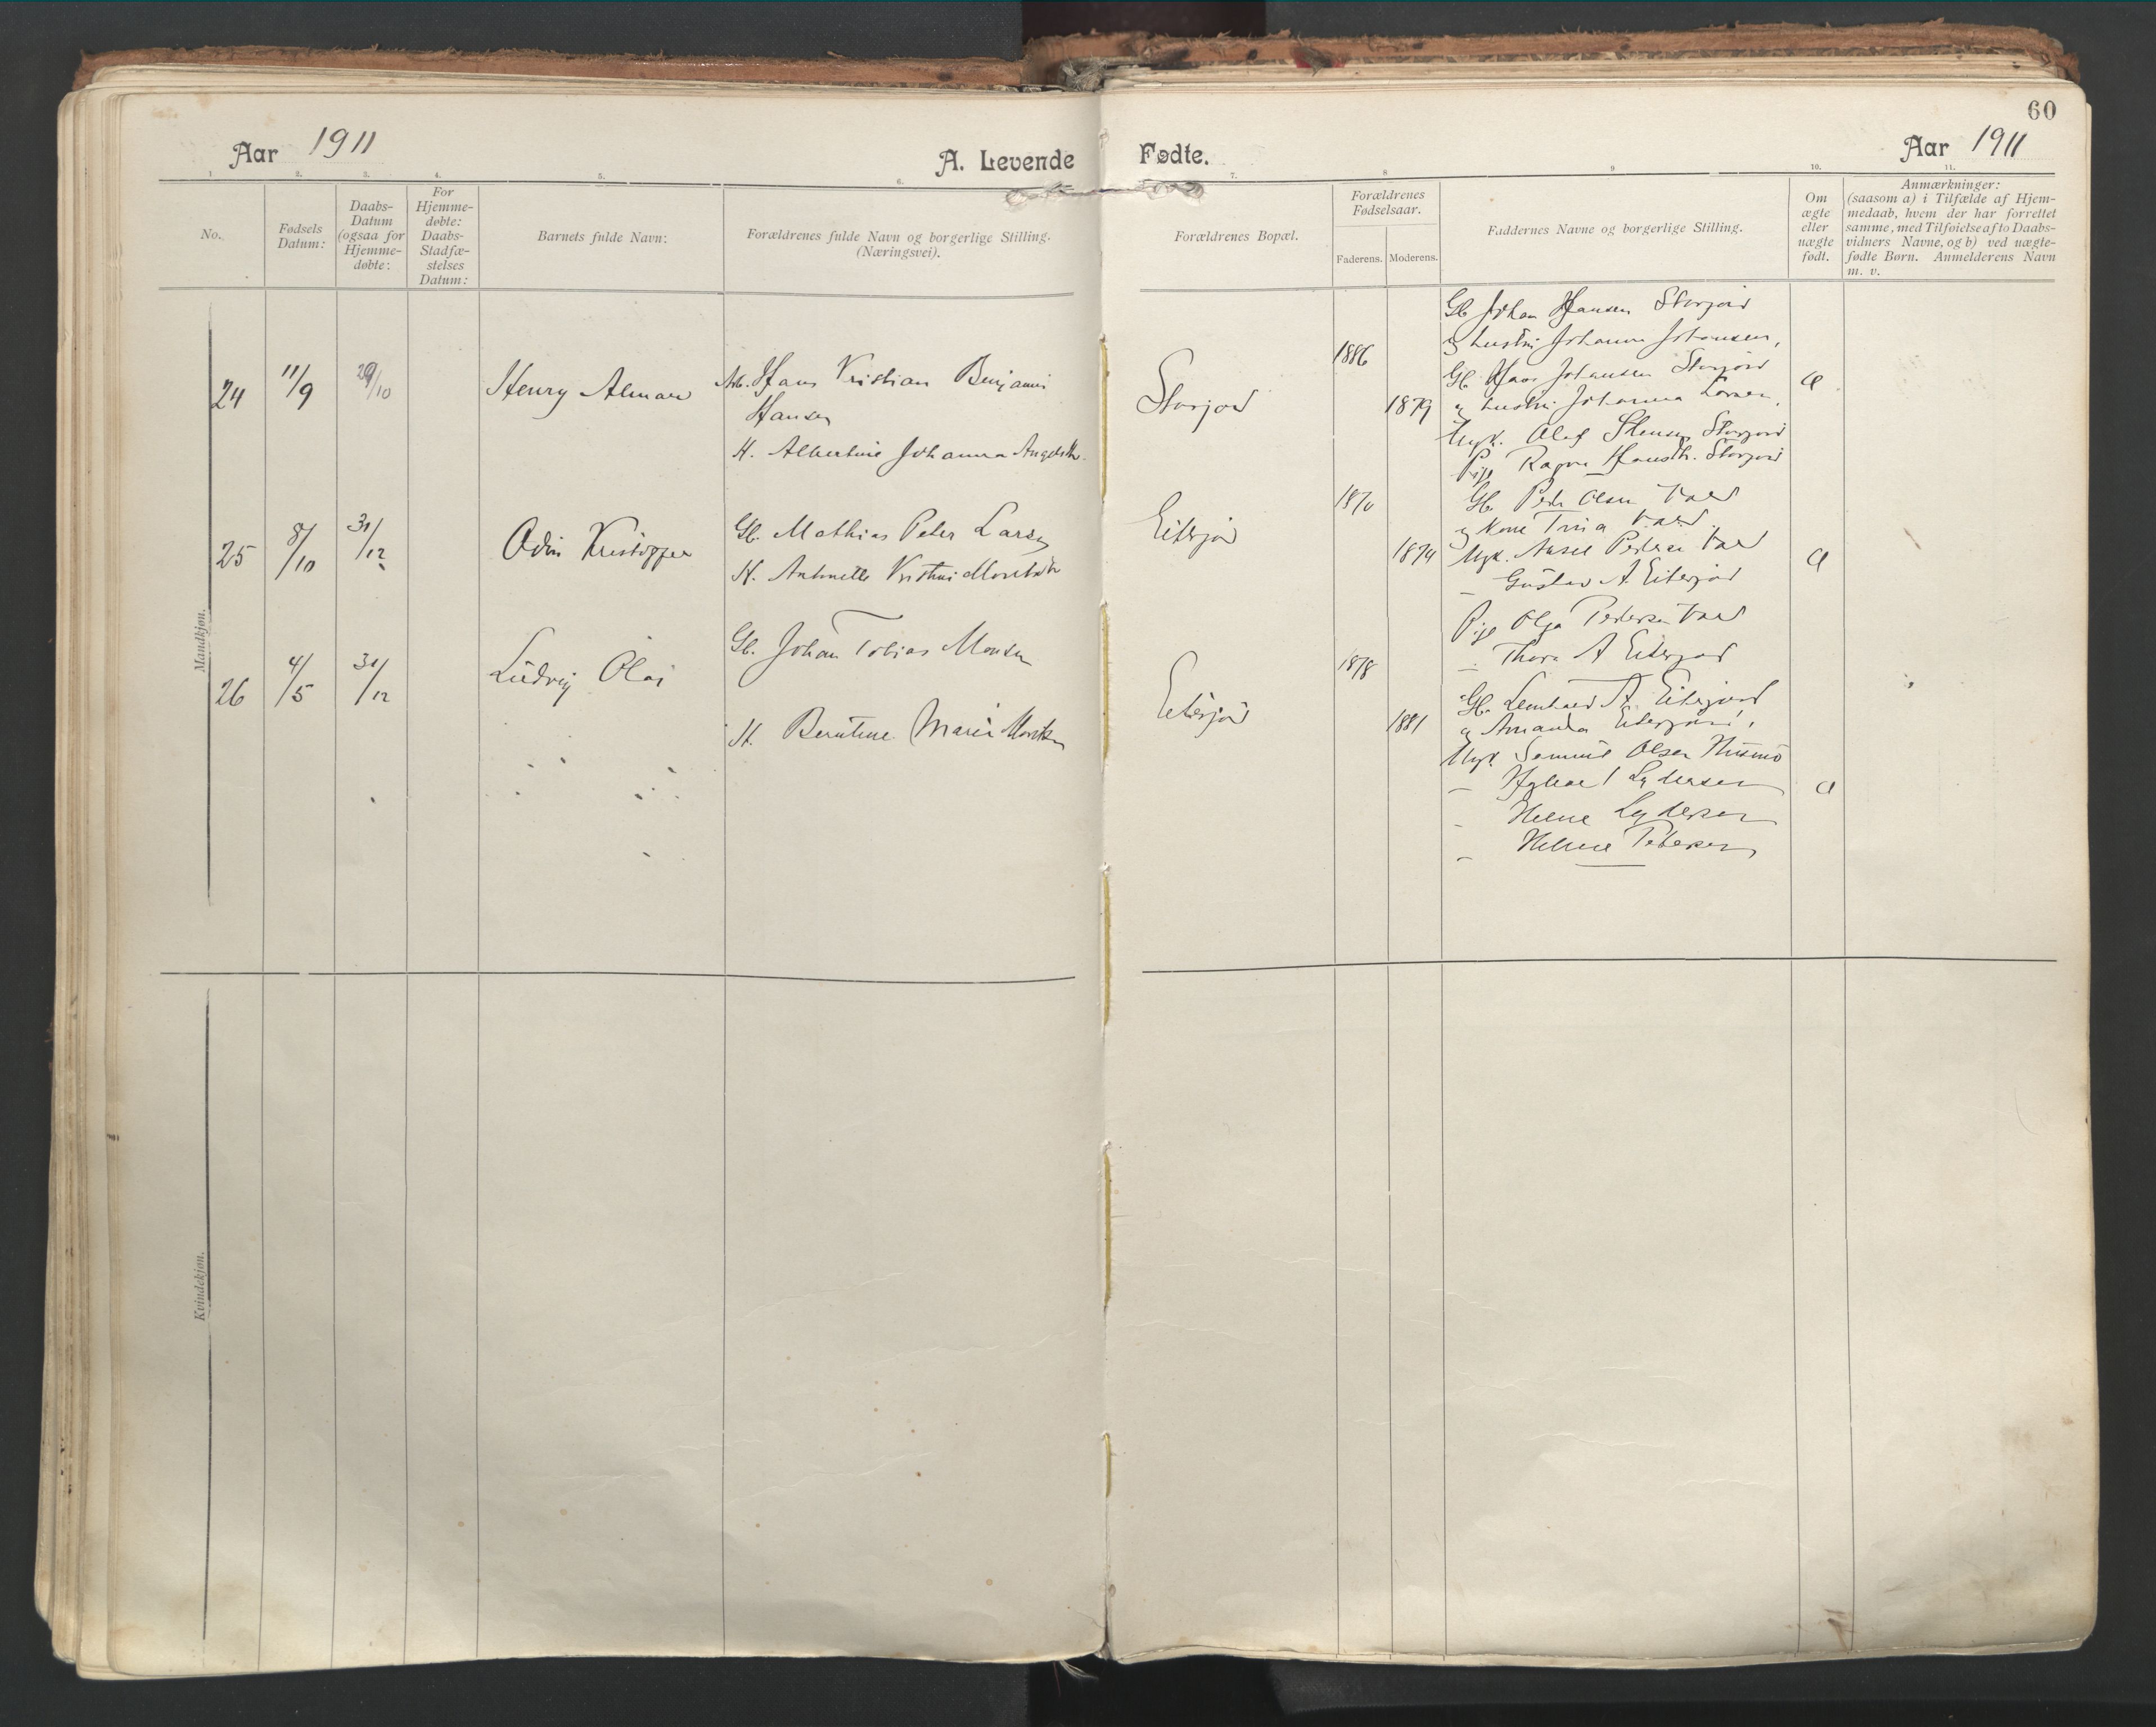 60
Aar 1911
A. Levende Fødte.
Aar 1911
1. 2. 3. 4. 5. 6. 7. 8 9 10. 11.
No.
Fødsels Datum:
Daabs-Datum (ogsaa for Hjemme-døbte:
For Hjemme-døbte: Daabs-Stadfæ-stelses Datum:
Barnets fulde Navn:
Forældrenes fulde Navn og borgerlige Stilling.
(Næringsvei).
Forældrenes Bopæl.
Forældrenes Fødselsaar.
Faderens. Moderens.
Faddernes Navne og borgerlige Stilling.
Om ægte eller uægte født.
Anmærkninger:
(saasom a) i Tilfælde af Hjem-
medaab, hvem der har forrettet
samme, med Tilføielse af to Daabs-
vidners Navne, og b) ved uægte-
fødte Børn. Anmelderens Navn
m. v.
Mandkjøn.
24 11/9 29/10 Henry Almar
Arb. Hans Kristian Benjamin
Hansen
H. Albertine Johanna
Storjord
1886
1879
Gb. Johan Hansen Storjord
og hustru Johanna Johansen,
Gb. Hans Johansen Storjord
og hustru Johanna Larsen,
Ungk. Olaf Storjord
Pige Ragna Storjord
æ
25 8/10 31/12 Odin Kristoffer
Gb. Mathias Peter Larsen
H. Antonette Kristine
Eiterjord
1870
1874
Gb. Peder Olsen
og Kone Trina
Ungk. Pedersen
– Gustav A. Eiterjord
Pige Olga Pedersen
– Thora A Eiterjord
æ
26 4/5 31/12 Ludvig Olai
Gb. Johan Tobias Monsen
H. Berntine Marie
Eiterjord
1878
1881
Gb. Lenhard A. Eiterjord
og Amanda Eiterjord,
Ungk. Samuel Olsen
– Lydersen
– Helene Lydersen
– Helene Petersen
æ
Kvindekjøn.